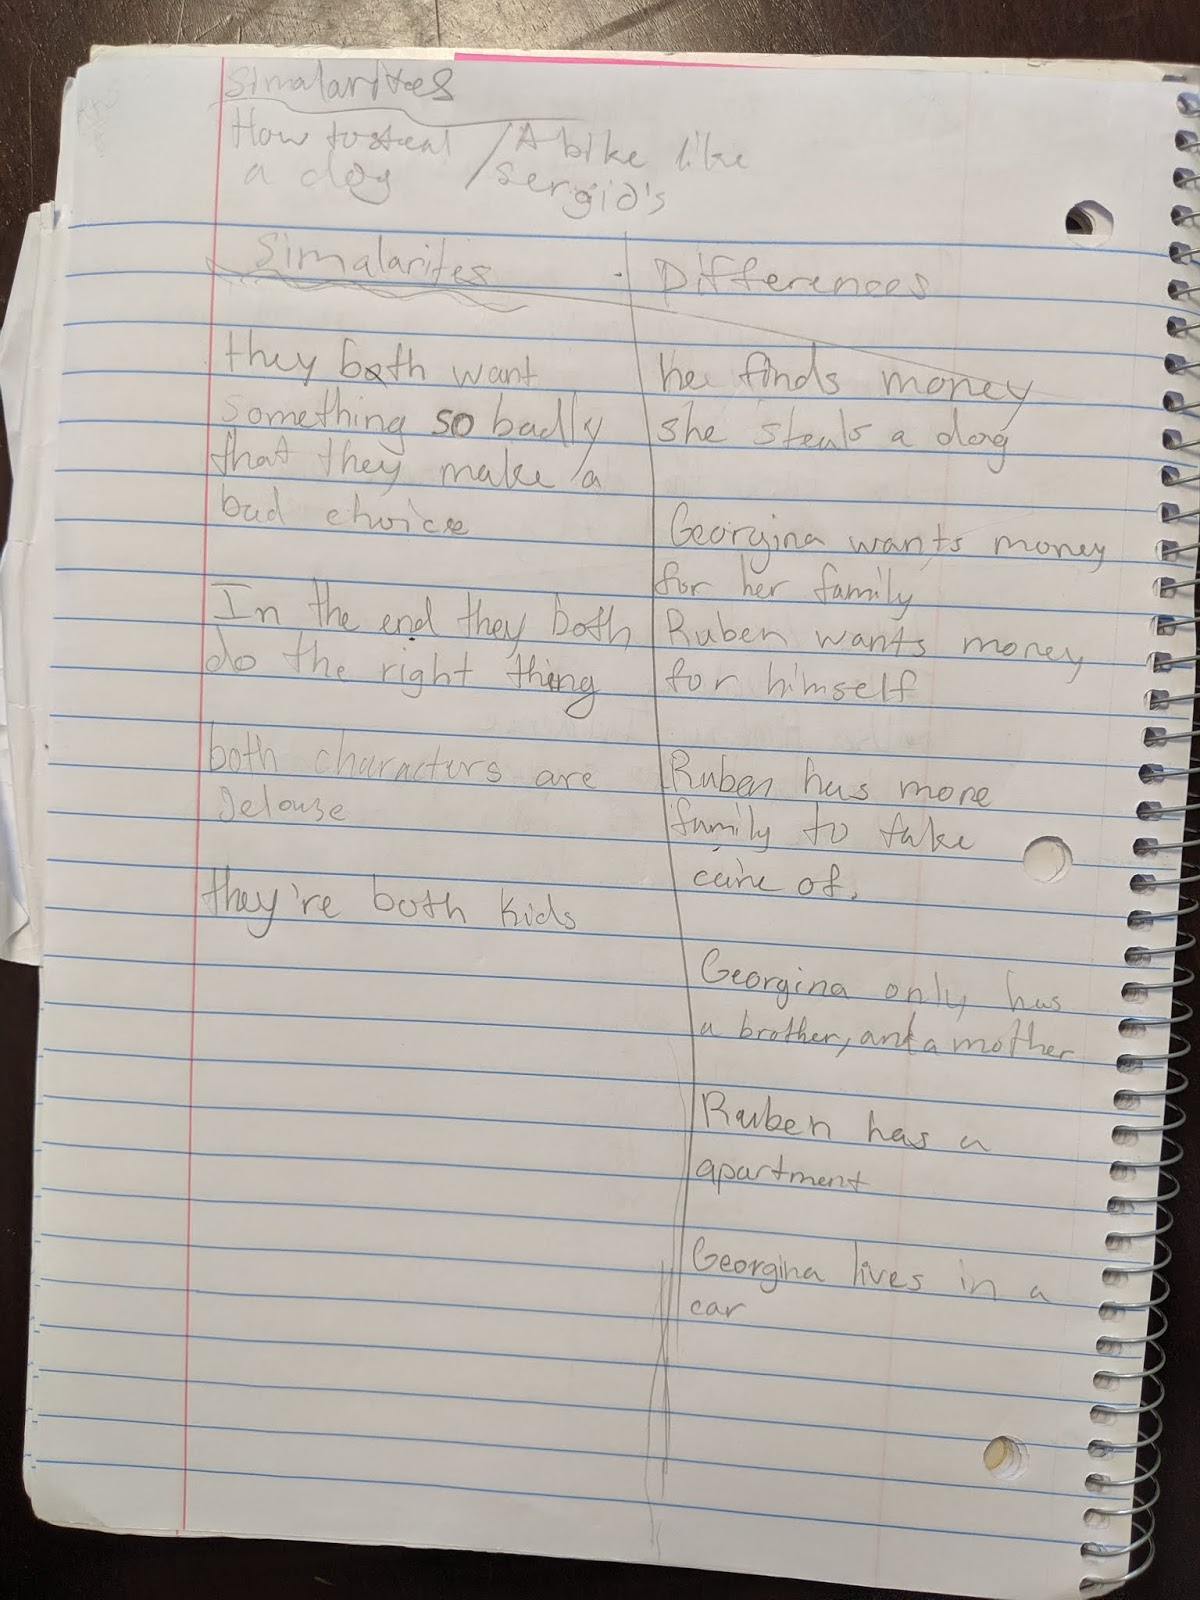 Simalarites
How to steal / A bike like
a dog / Sergio's
Simalarites
they both want
something so badly
that they make a
bad choice
In the end they both
do the right thing
both characturs are
jelouse
they're both kids
Differences
he finds money
she steals a dog
Georgina wants money
for her family
Ruben wants money
for himself
Ruben has more
family to take
care of.
Georgina only has
a brother, and a mother
Ruben has a
apartment
Georgina lives in a
car